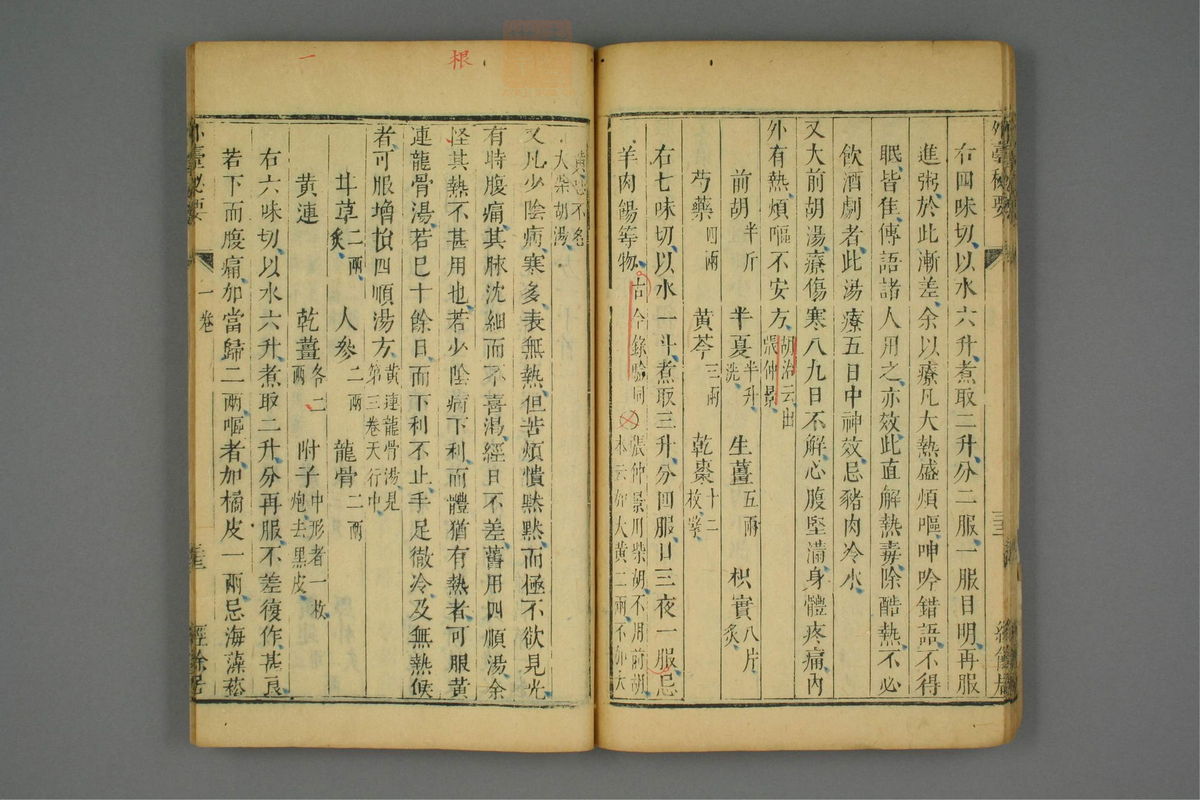 外臺秘要
右四味切以水六升煮取二升分二服一服目明再服
進粥於此漸差余以療凡大熱盛煩嘔呻吟錯語不得
眠皆佳傳語諸人用之亦效此直解熱毒除酷熱不必
飲酒劇者此湯療五日中神效忌豬肉冷水
又大前胡湯療傷寒八九日不解心腹堅滿身體疼痛內
外有熱煩嘔不安方胡洽云出
張仲景
前胡半斤 半夏半升
洗 生薑五兩 枳實八片
炙
芍藥四兩 黄芩三兩 乾棗十二
枚擘
右七味切以水一斗煮取三升分四服日三夜一服忌
羊肉餳等物古今錄驗同張仲景用柴胡不用前胡
本云加大黄二兩不加大
根
一
黄恐不名
大柴胡湯
又凡少陰病寒多表無熱但苦煩憒默默而極不欲見光
有時腹痛其脉沈細而不喜渴經日不差舊用四順湯余
怪其熱不甚用也若少陰病下利而體猶有熱者可服黄
連龍骨湯若已十餘日而下利不止手足徹冷及無熱候
者可服增損四順湯方黄連龍骨湯見
第三卷天行中
甘草二兩
炙 人參二兩 龍骨二兩
黄連 乾薑各二
兩 附子中形者一枚
炮去黑皮
右六味切以水六升煮取二升分再服不差復作甚良
若下而腹痛加當歸二兩嘔者加橘皮一兩忌海藻菘
外臺秘要
一卷
經餘居